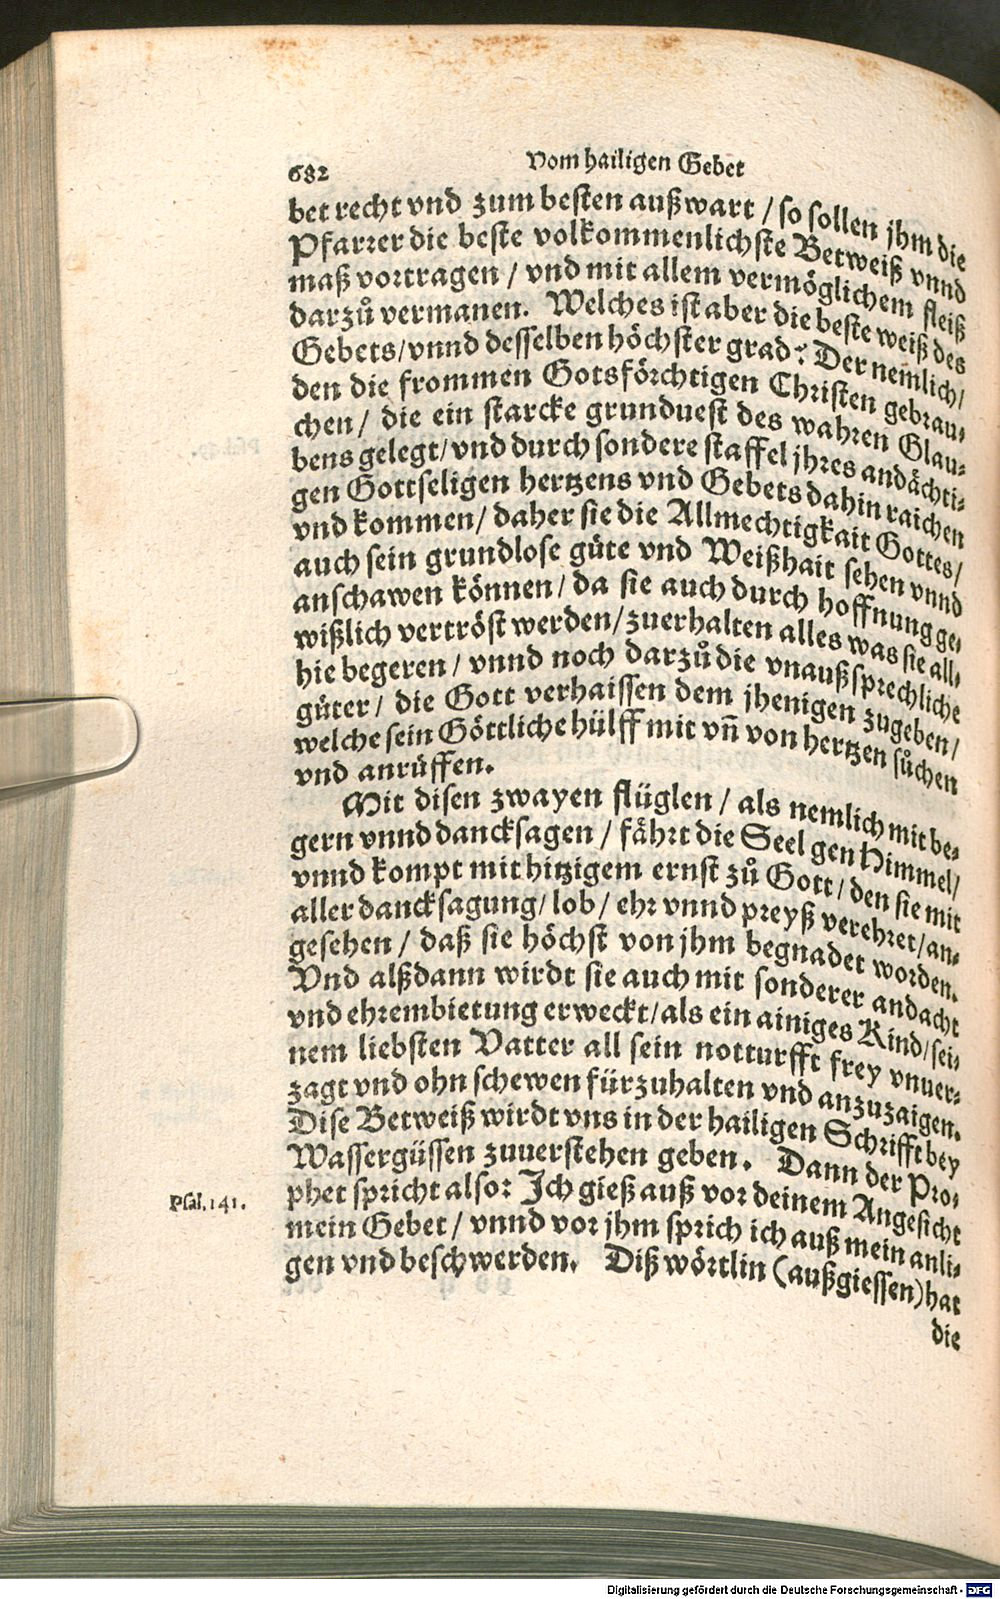 682
Vom hailigen Gebet
bet recht vnd zum besten außwart / so sollen jhm die
Pfarrer die beste volkommenlichste Betweiß vnnd
maß vortragen / vnd mit allem vermöglichem fleiß
darzů vermanen. Welches ist aber die beste weiß des
Gebets/vnnd desselben höchster grad? Der nemlich/
den die frommen Gotsförchtigen Christen gebrau-
chen / die ein starcke grunduest des wahren Glau-
bens gelegt/vnd durch sondere staffel jhres andächti-
gen Gottseligen hertzens vnd Gebets dahin raichen
vnd kommen/ daher sie die Allmechtigkait Gottes/
auch sein grundlose güte vnd Weißhait sehen vnnd
anschawen können / da sie auch durch hoffnung ge-
wißlich vertröst werden/zuerhalten alles was sie all-
hie begeren / vnnd noch darzů die vnaußsprechliche
güter / die Gott verhaissen dem jhenigen zugeben/
welche sein Göttliche hülff mit vñ von hertzen sůchen
vnd anrüffen.
Mit disen zwayen flüglen / als nemlich mit be-
gern vnnd dancksagen / fährt die Seel gen Himmel/
vnnd kompt mit hitzigem ernst zů Gott / den sie mit
aller dancksagung/ lob / ehr vnnd preyß verehret/an-
gesehen / daß sie höchst von jhm begnadet worden.
Vnd alßdann wirdt sie auch mit sonderer andacht
vnd ehrembietung erweckt/als ein ainiges Kind/sei-
nem liebsten Vatter all sein notturfft frey vnuer-
zagt vnd ohn schewen fürzuhalten vnd anzuzaigen.
Dise Betweiß wirdt vns in der hailigen Schrifft bey
Wassergüssen zuuerstehen geben. Dann der Pro-
Psal.141.
phet spricht also: Ich gieß auß vor deinem Angesicht
mein Gebet / vnnd vor jhm sprich ich auß mein anli-
gen vnd beschwerden. Diß wörtlin (außgiessen) hat
die
Digitalisierung gefördert durch die Deutsche Forschungsgemeinschaft - DFG